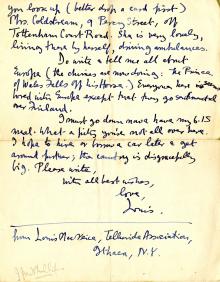 you look up (better drop a card first)
Mrs. Coldstream, a Percy Street, off
Tottenham Court Road. She is very lonely,
living there by herself, driving ambulances.
Do write & tell me all about
Europe (the choices are now doing: the Prince
of Wales Falls off his Horse.) Everyone here is
bored with Europe except that they go sentimental
over Finland.
I must go down & have my 6.15
meal. What a pity you're not all over here.
I hope to hire or borrow a car later & get
around further; the country is disgracefully
big. Please write,
with all best wishes,
love,
Louis.
from Louis MacNeice, Telluride Association,
Ithaca, N.Y.